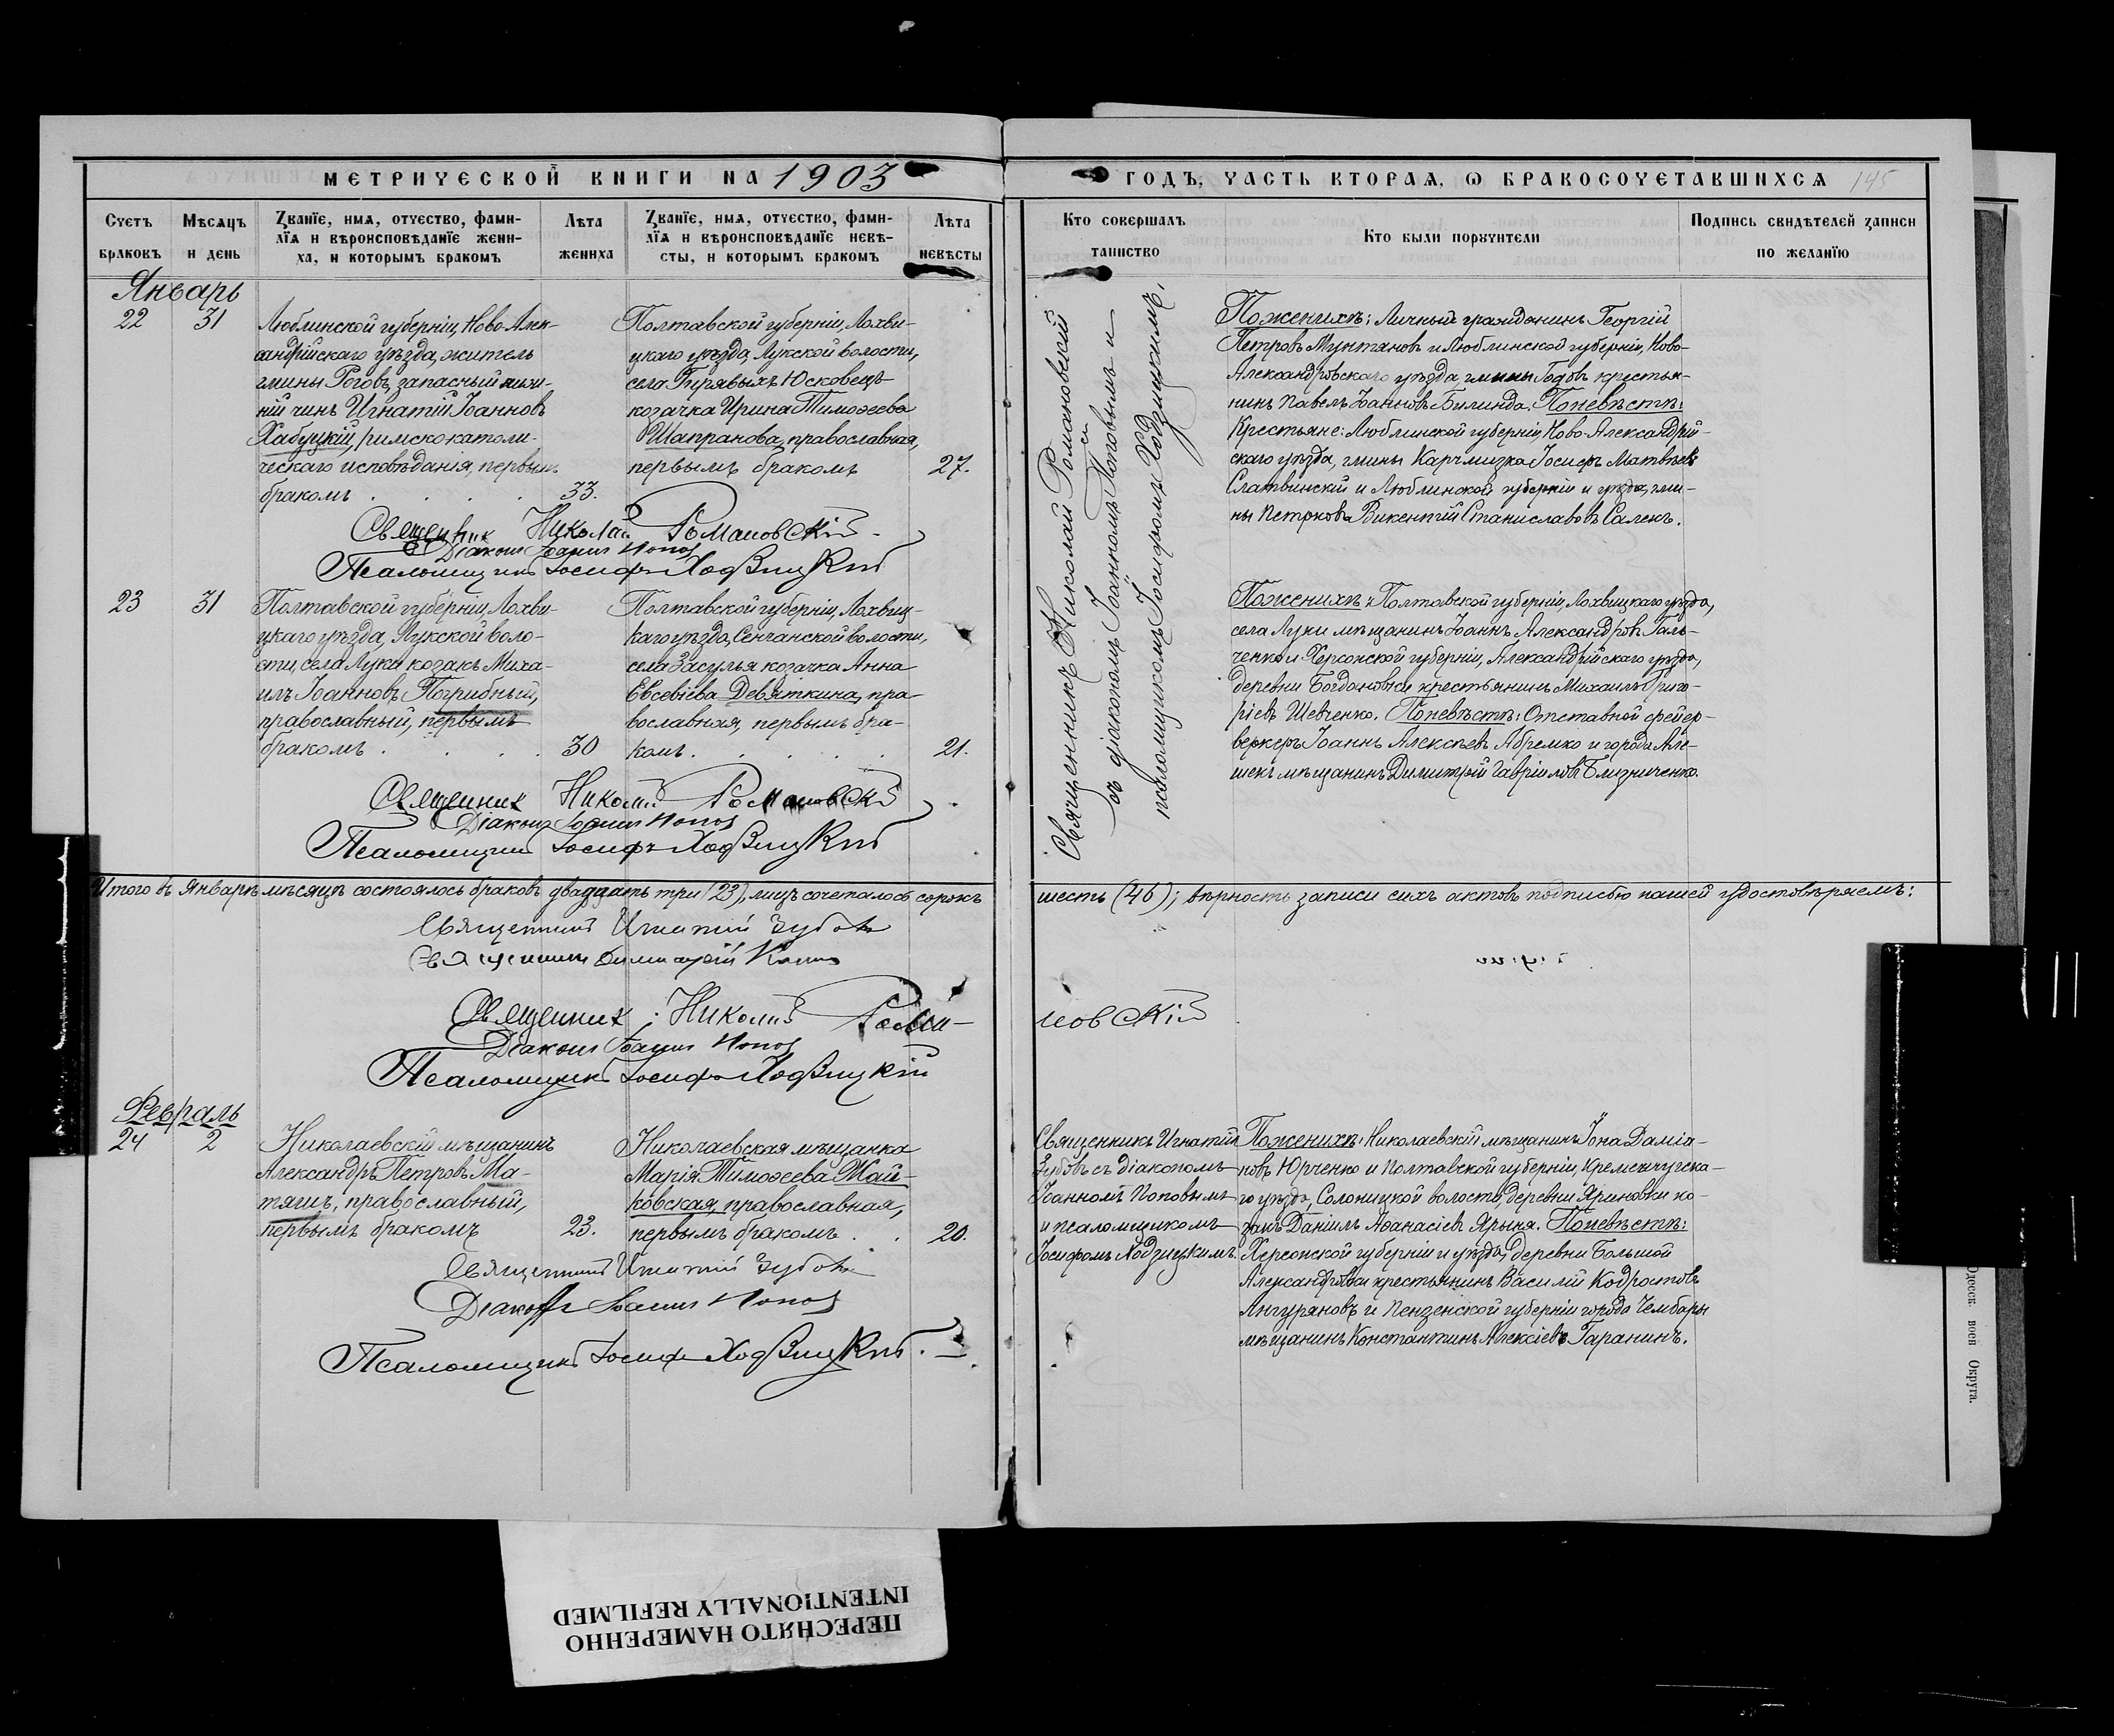 МЕТРИЧЕСКОЙ КНИГИ НА 1903
ГОДЪ, ЧАСТЬ ВТОРАЯ, Ѡ БРАКОСОЧЕТАВШИХСЯ 145
Счетъ браковъ
Мѣсяцъ и день
Званїе, имя, отчество, фами-
лїя и вѣроисповѣданїе жени-
ха, и которымъ бракомъ
Лѣта жениха
Званїе, имя, отчество, фами-
лїя и вѣроисповѣданїе невѣ-
сты, и которымъ бракомъ
Лѣта невѣсты
Кто совершалъ таинство
Кто были поручители
Подпись свидѣтелей записи
по желанїю
Январь
22 31
Люблинской губерніи, Ново-Алек-
сандрійскаго уѣзда, житель
гмины Роговъ, запасный ниж-
ній чинъ Игнатій Іоанновъ
Хабуцкій, римскокатоли-
ческаго исповѣданія, первымъ
бракомъ . . . . 33.
Полтавской губерніи, Лохви-
цкаго уѣзда, Лукской волости,
села Гирявыхъ Юсковецъ
козачка Ирина Тимоѳеева
Шапранова, православная,
первымъ бракомъ 27.
Священникъ Николай Романовскій
съ діакономъ Іоанномъ Поповымъ и
псаломщикомъ Іосифомъ Ходзицкимъ.
По женихѣ: Личный гражданинъ Георгій
Петровъ Мунтяновъ и Люблинской губерніи, Ново-
Александровскаго уѣзда, гмины Годовъ крестья-
нинъ Павелъ Іоанновъ Билинда. По невѣстѣ:
Крестьяне: Люблинской губерніи, Ново-Александрій-
скаго уѣзда, гмины Карчмиска Іосифъ Матвѣевъ
Слатвинскій и Люблинской губерніи и уѣзда, гми-
ны Петркова Викентій Станиславовъ Салекъ.
Священник Николай Романовскій.
Діаконъ Іоаннъ Попов
Псаломщикъ Іосифъ Ходзицкій
23 31
Полтавской губерніи, Лохви-
цкаго уѣзда, Лукской воло-
сти, села Луки козакъ Миха-
илъ Іоанновъ Погрибный,
православный, первымъ
бракомъ . . . . 30
Полтавской губерніи, Лохвиц-
каго уѣзда, Сенчанской волости,
села Засулья козачка Анна
Евсевіева Девяткина, пра-
вославная, первымъ бра-
комъ . . . . . 21.
По женихѣ: Полтавской губерніи, Лохвицкаго уѣзда,
села Луки мѣщанинъ Іоаннъ Александровъ Галь-
ченко и Херсонской губерніи, Александрійскаго уѣзда,
деревни Богдановки крестьянинъ Михаилъ Григо-
ріевъ Шевченко. По невѣстѣ: Отставной фейер-
веркеръ Іоаннъ Алексѣевъ Абремко и города Але-
шекъ мѣщанинъ Димитрій Гавріиловъ Близниченко.
Священник Николай Романовскій
Діаконъ Іоаннъ Попов
Псаломщикъ Іосифъ Ходзицкій
Итого въ Январѣ мѣсяцѣ состоялось браковъ двадцать три (23), лицъ сочеталось сорокъ
шесть (46); вѣрность записи сихъ актовъ подписью нашей удостовѣряемъ:
Священникъ Игнатій Зубовъ
Священникъ Димитрій
Священник Николай Рома-
новскій
Діаконъ Іоаннъ Попов
Псаломщикъ Іосифъ Ходзицкій
Февраль
24 2
Николаевскій мѣщанинъ
Александръ Петровъ Ма-
тяшъ, православный,
первымъ бракомъ 23.
Николаевская мѣщанка
Марія Тимоѳеева Жай-
ковская, православная,
первымъ бракомъ . . 20.
Священникъ Игнатій
Зубовъ съ діакономъ
Іоанномъ Поповымъ
и псаломщикомъ
Іосифомъ Ходзицкимъ.
По женихѣ: Николаевскій мѣщанинъ Іона Даміа-
новъ Юрченко и Полтавской губерніи, Кременчугска-
го уѣзда, Солоницкой волости, деревни Яриновки ко-
закъ Даніилъ Аѳанасіевъ Ярына. По невѣстѣ:
Херсонской губерніи и уѣзда, деревни Большой
Александровки крестьянинъ Василій Кодратовъ
Ангуряновъ и Пензенской губерніи города Чембары
мѣщанинъ Константинъ Алексіевъ Гаранинъ.
Священникъ Игнатій Зубовъ
Діаконъ Іоаннъ Попов
Псаломщикъ Іосифъ Ходзицкій.
Одесск. воен Округа.
ПЕРЕСНЯТО НАМЕРЕННО
INTENTIONALLY REFILMED